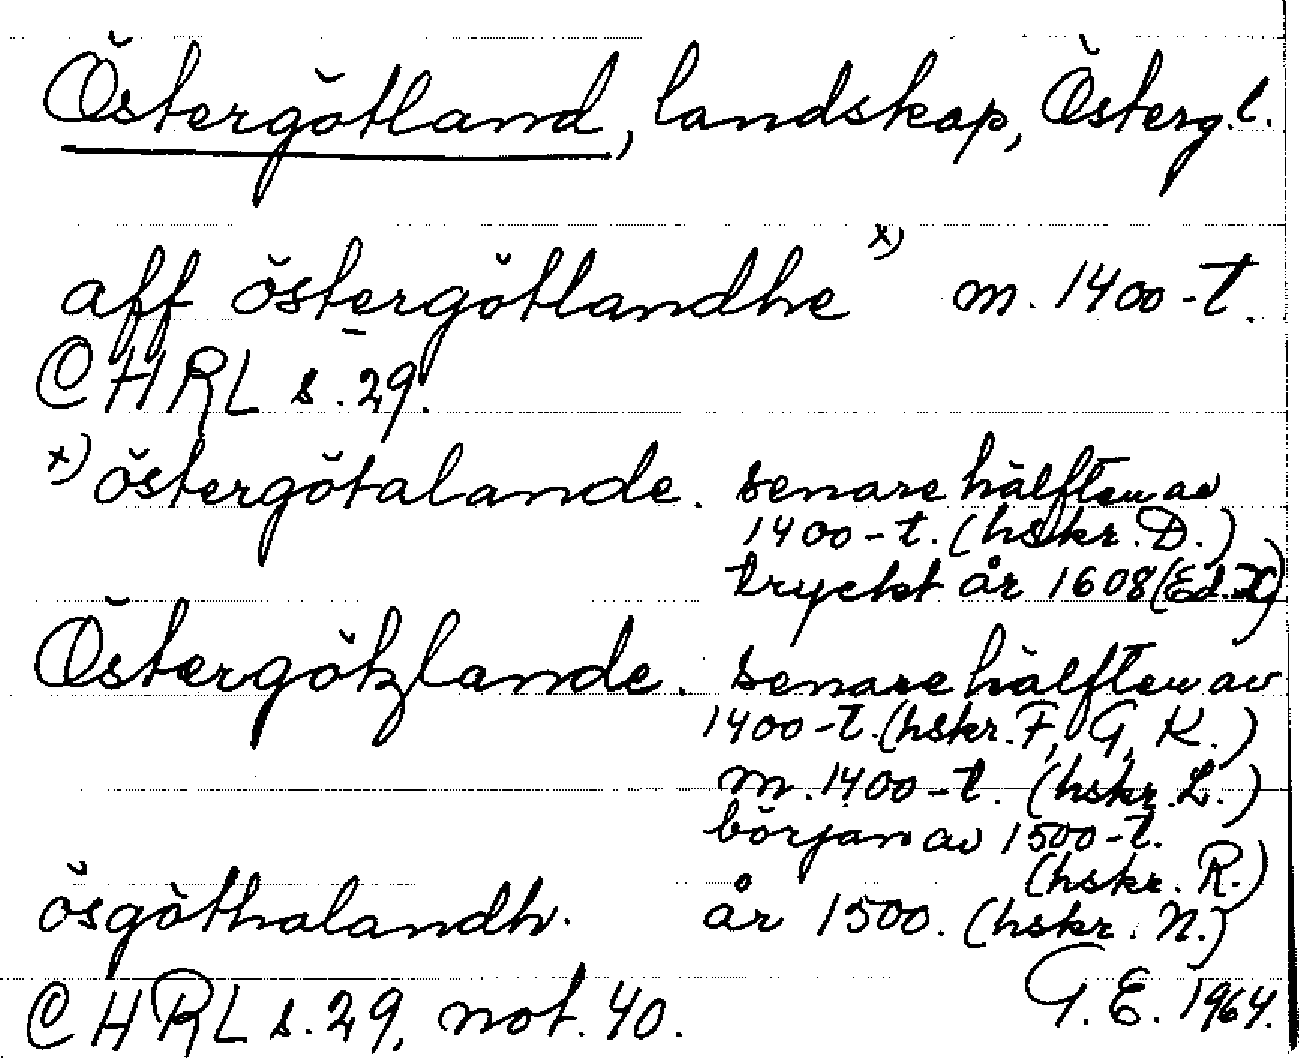 Östergötland, landskap, Österg.l.
aff östergötlandhe x) m. 1400-t.
CHRL s. 29.
x) östergötalande. senare hälften av
1400-t. (hskr. D.)
tryckt år 1608 (Ed. X)
Östergötzlande. senare hälften av
1400-t. (hskr. F, G, K.)
m. 1400-t. (hskr. L.)
början av 1500-t.
(hskr. R.)
ösgöthalandh. år 1500. (hskr. N.)
CHRL s. 29, not. 40. G. E. 1964.